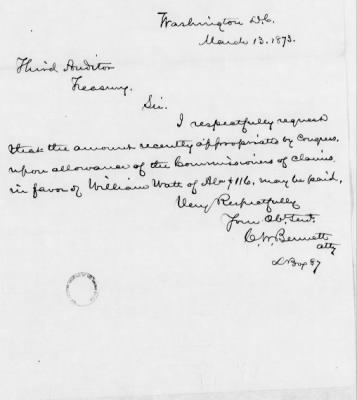 Washington D.C.
March 13. 1873.
Third Auditor
Treasury.
Sir.
I respectfully request
that the amount recently appropriated by Congress,
upon allowance of the Commissioners of claims
in favor of William Watt of Ala $116, may be paid,
Very Respectfully
Your Obt. Servt.
C. W. Bennett
Atty
L Box 87